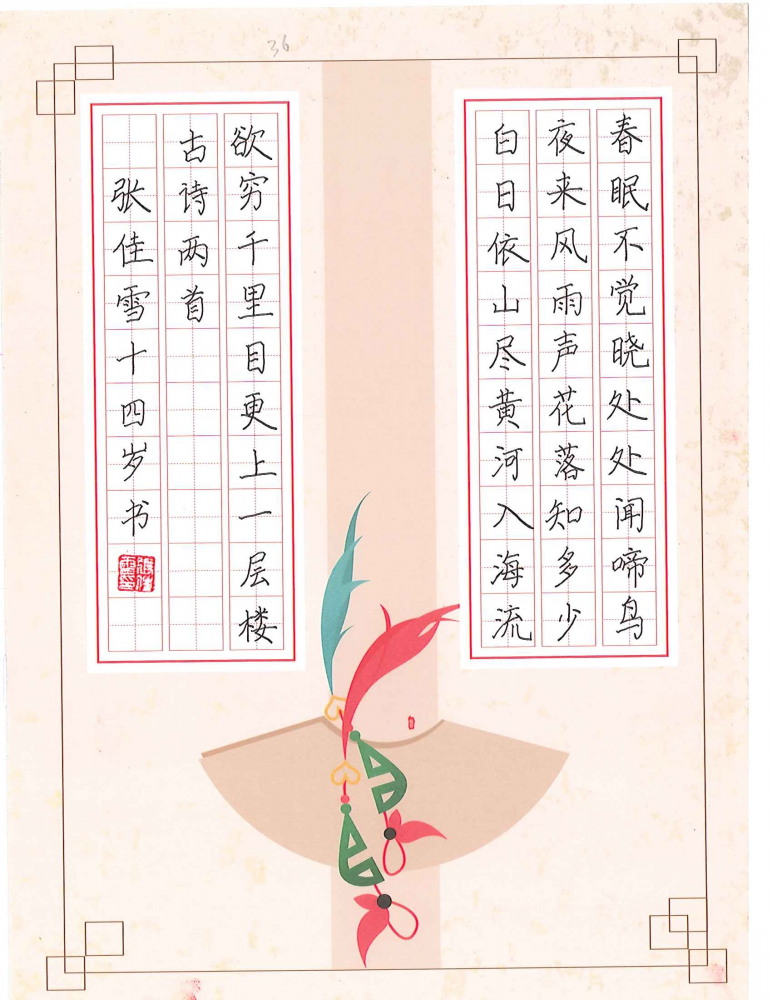 36
春眠不觉晓处处闻啼鸟
夜来风雨声花落知多少
白日依山尽黄河入海流
欲穷千里目更上一层楼
古诗两首
张佳雪十四岁书